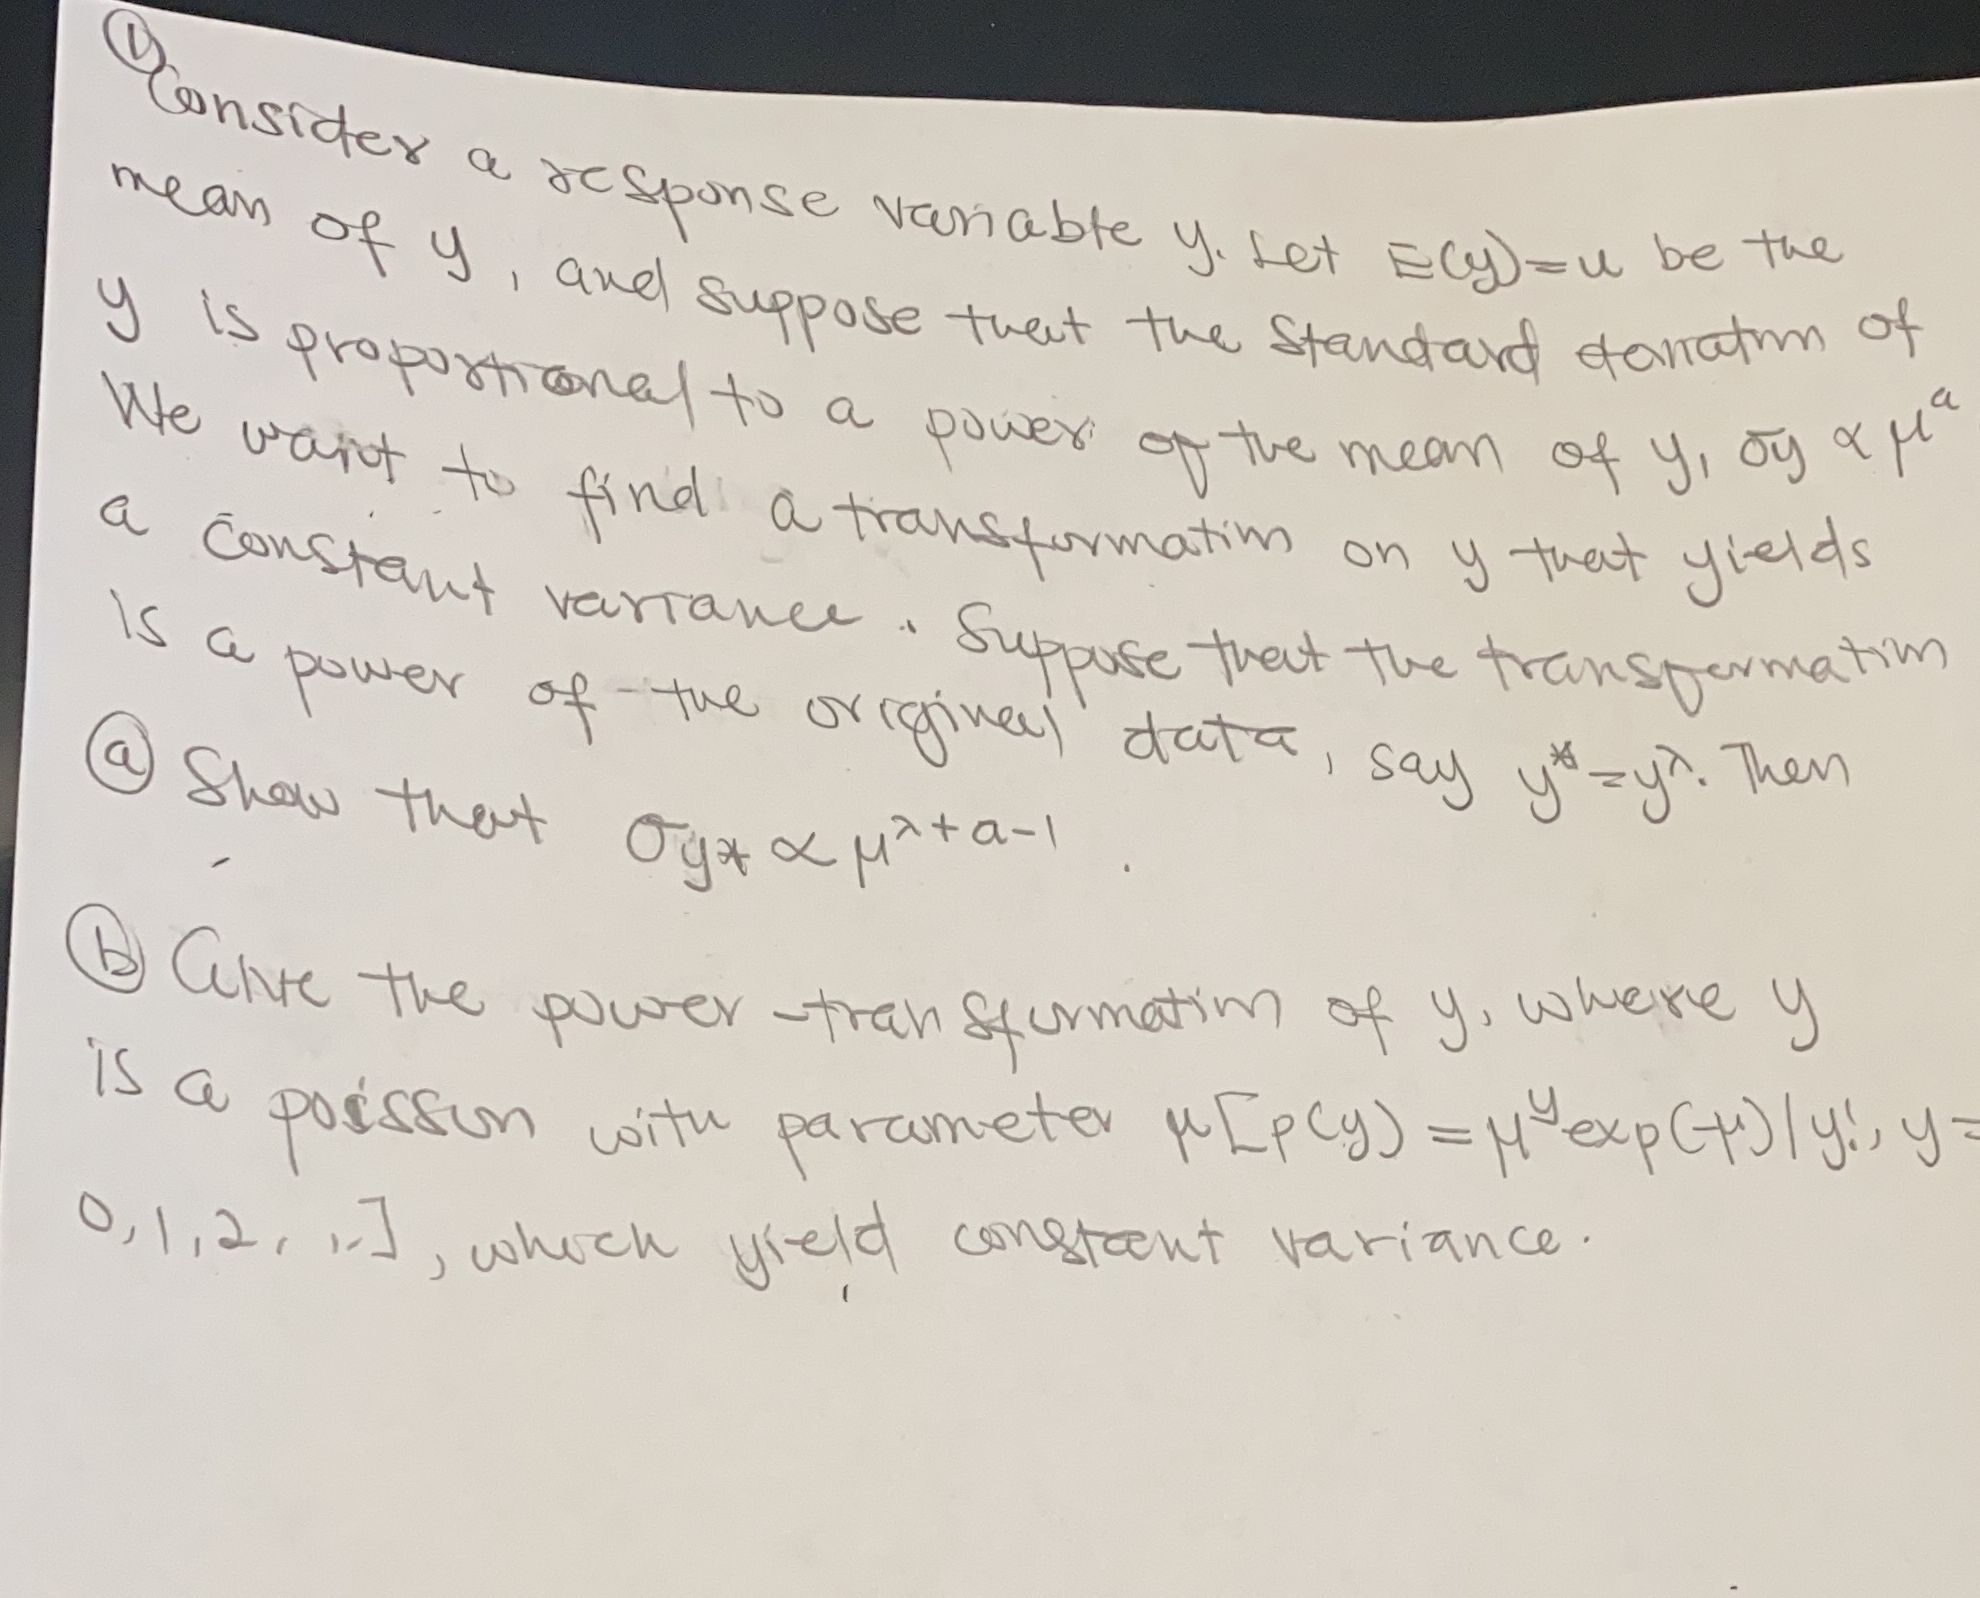 ①
Consider a response variable y. Let E(y)=u be the
mean of y, and suppose that the standard of
y is proportional to a power of the mean of y, σy ∝ μ^a
We want to find a transformation on y that yields
a constant variance. Suppose that the transformation
is a power of the original data, say y*=y^λ. Then
ⓐ Show that σy* ∝ μ^λ+a-1.
ⓑ Give the power-transformation of y, where y
is a poisson with parameter μ[p(y)=μ^y exp(-μ)/y!, y=
0,1,2, ..], which yield constant variance.